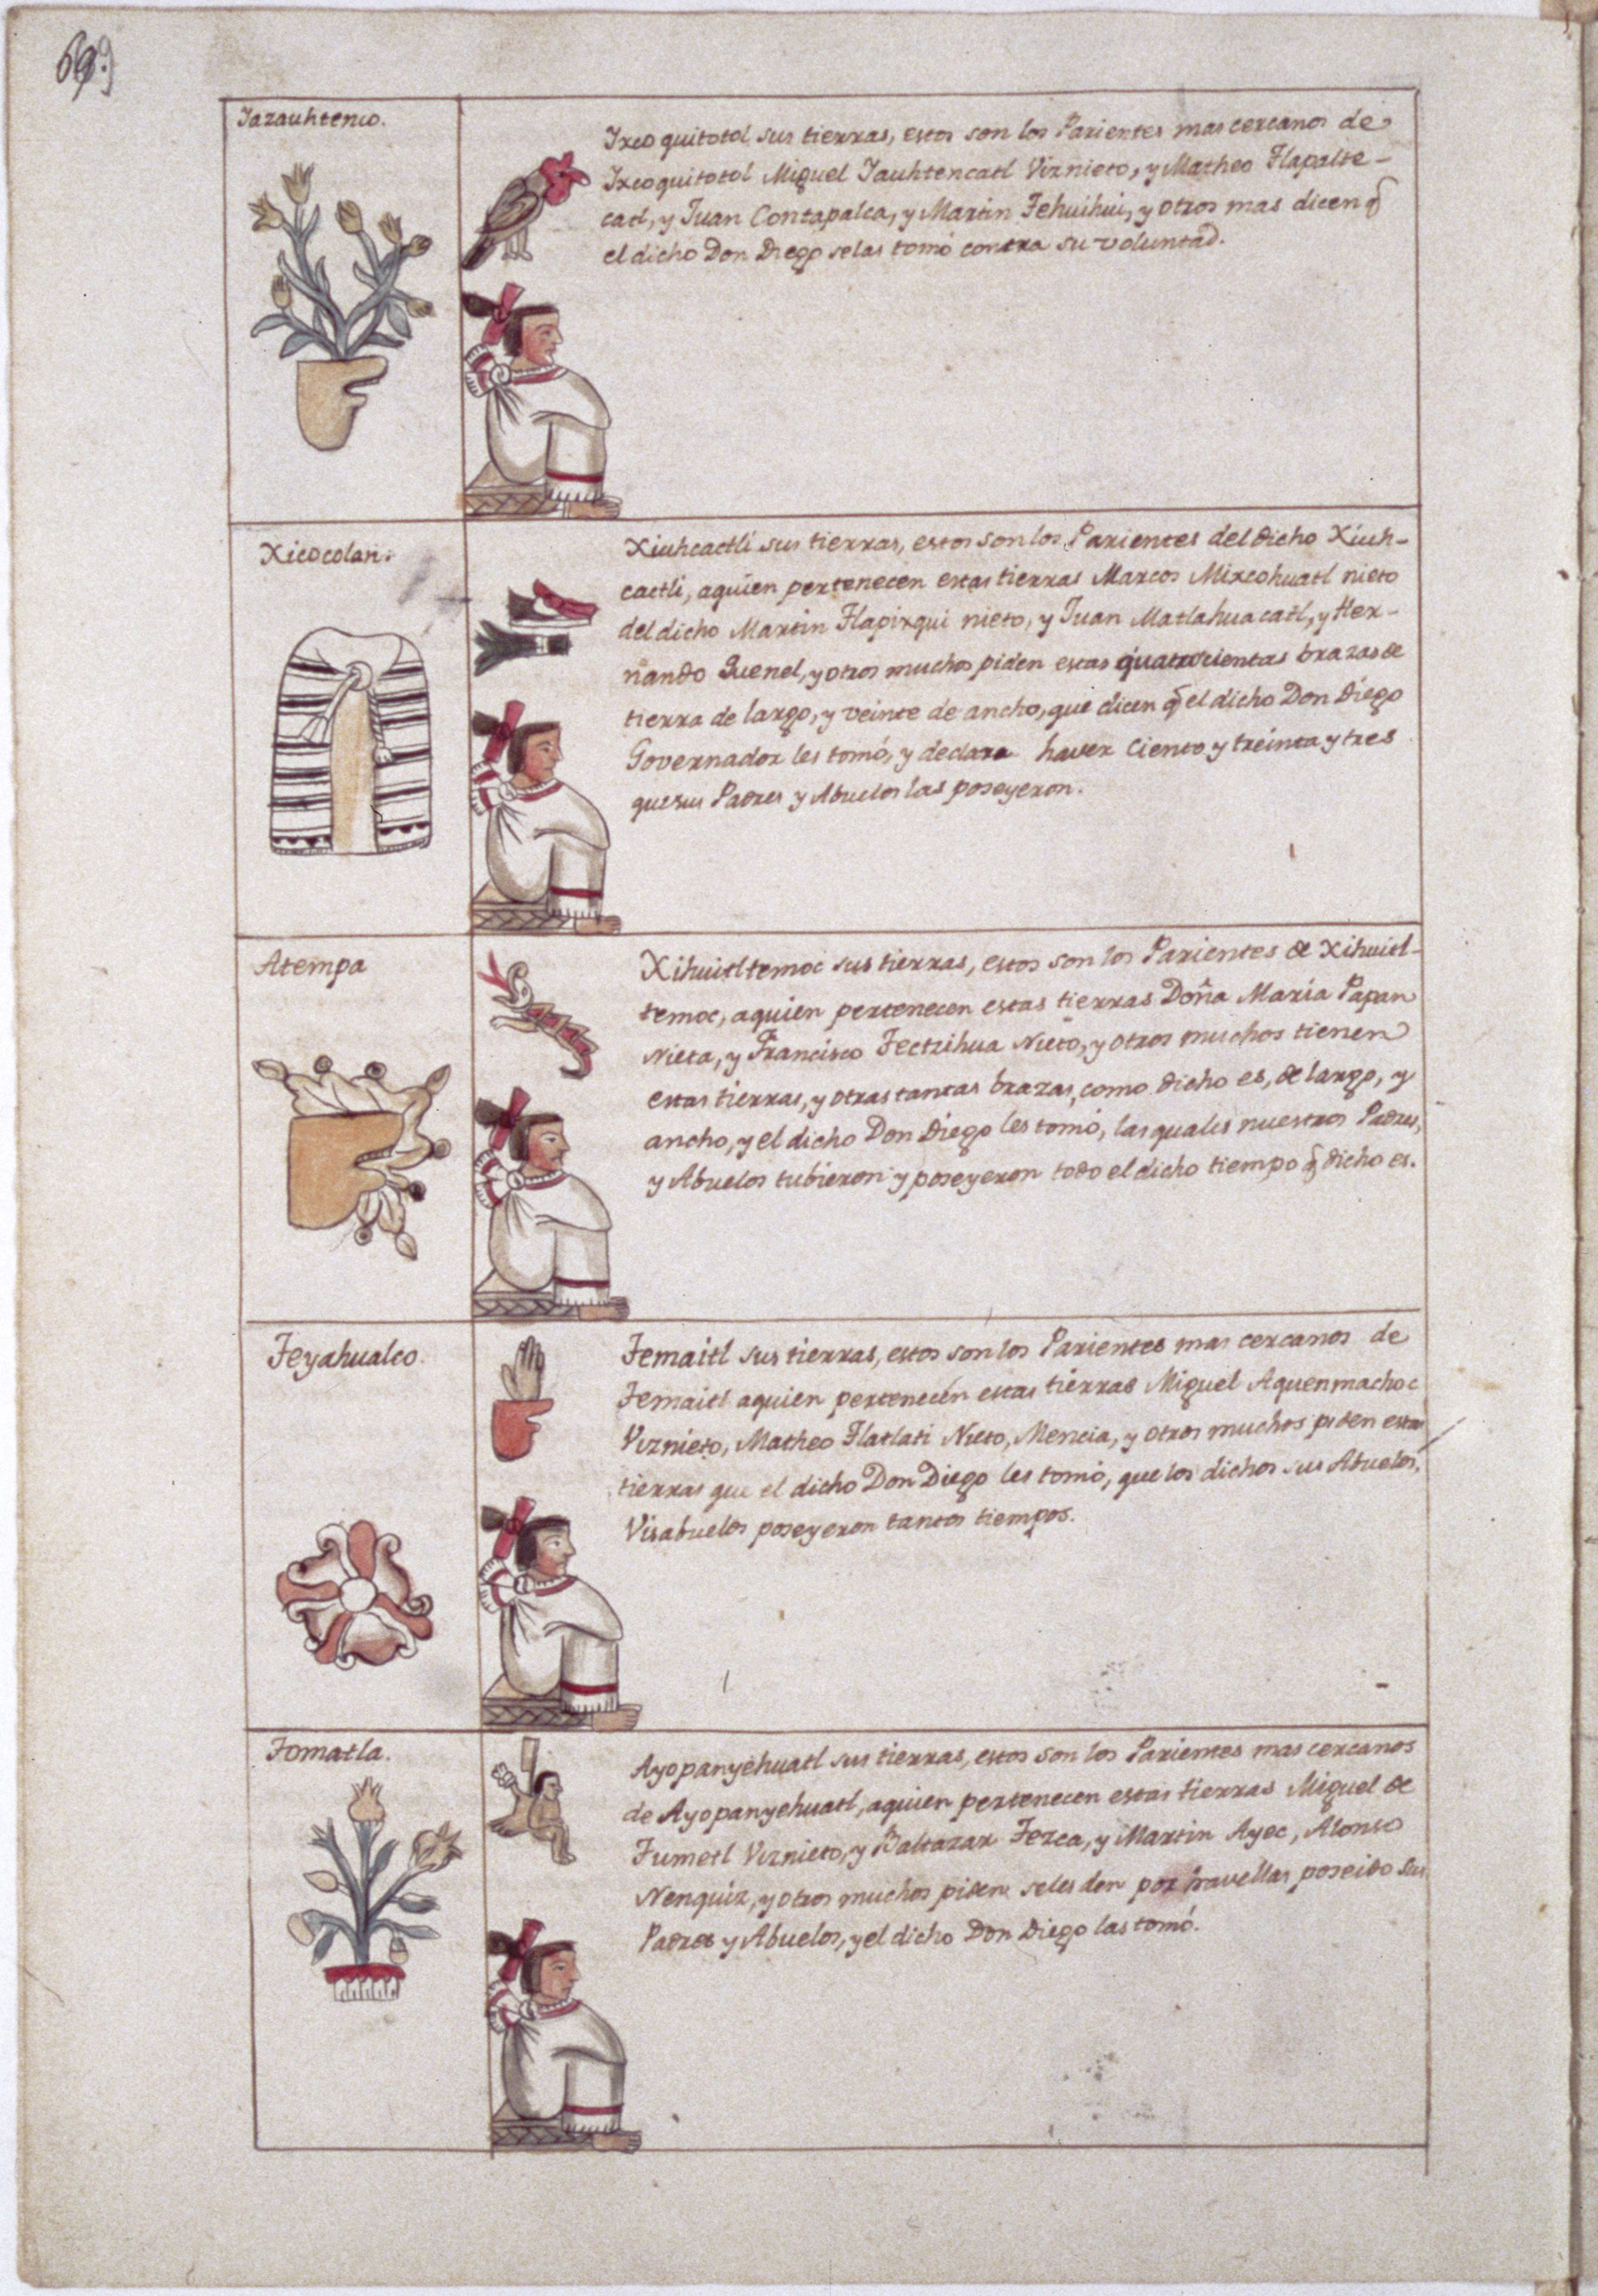 69.
Iazauhtenco.
Ixcoquitotol sus tierras, estos son los Parientes mas cercanos de
Ixcoquitotol Miguel Iauhtencatl Viznieto, y Matheo Tlapalte-
catl, y Juan Contapalca, y Martin Tehuihui, y otros mas dicen q̃
el dicho Don Diego selas tomó contra su voluntad.
Xicocolan.
Xiuhcactli sus tierras, estos son los Parientes del dicho Xiuh-
cactli, aquien pertenecen estas tierras Marcos Mixcohuatl nieto
del dicho Martin Tlapixqui nieto, y Juan Matlahuacatl, y Her-
nando Quenel, y otros muchos piden estas quatrocientas brazas de
tierra de largo, y veinte de ancho, que dicen q̃ el dicho Don Diego
Governador les tomó, y declara haver Ciento y treinta y tres
que sus Padres y Abuelos las poseyeron.
Atempa
Xihuitltemoc sus tierras, estos son los Parientes de Xihuitl-
temoc, aquien pertenecen estas tierras Doña Maria Papan
Nieta, y Francisco Tectzihua Nieto, y otros muchos tienen
estas tierras, y otras tantas brazas, como dicho es, de largo, y
ancho, y el dicho Don Diego les tomó, las quales nuestros Padres,
y Abuelos tubieron y poseyeron todo el dicho tiempo q̃ dicho es.
Teyahualco.
Temaitl sus tierras, estos son los Parientes mas cercanos de
Temaitl aquien pertenecen estas tierras Miguel Aquenmachoc
Viznieto, Matheo Tlatlati Nieto, Mencia, y otros muchos piden estas
tierras que el dicho Don Diego les tomó, que los dichos sus Abuelos,
Visabuelos poseyeron tantos tiempos.
Tomatla.
Ayopanyehuatl sus tierras, estos son los Parientes mas cercanos
de Ayopanyehuatl, aquien pertenecen estas tierras Miguel de
Tumetl Viznieto, y Baltazar Tezca, y Martin Ayec, Alonso
Nenquiz, y otros muchos piden seles den por havellas poseido sus
Padres y Abuelos, y el dicho Don Diego las tomó.